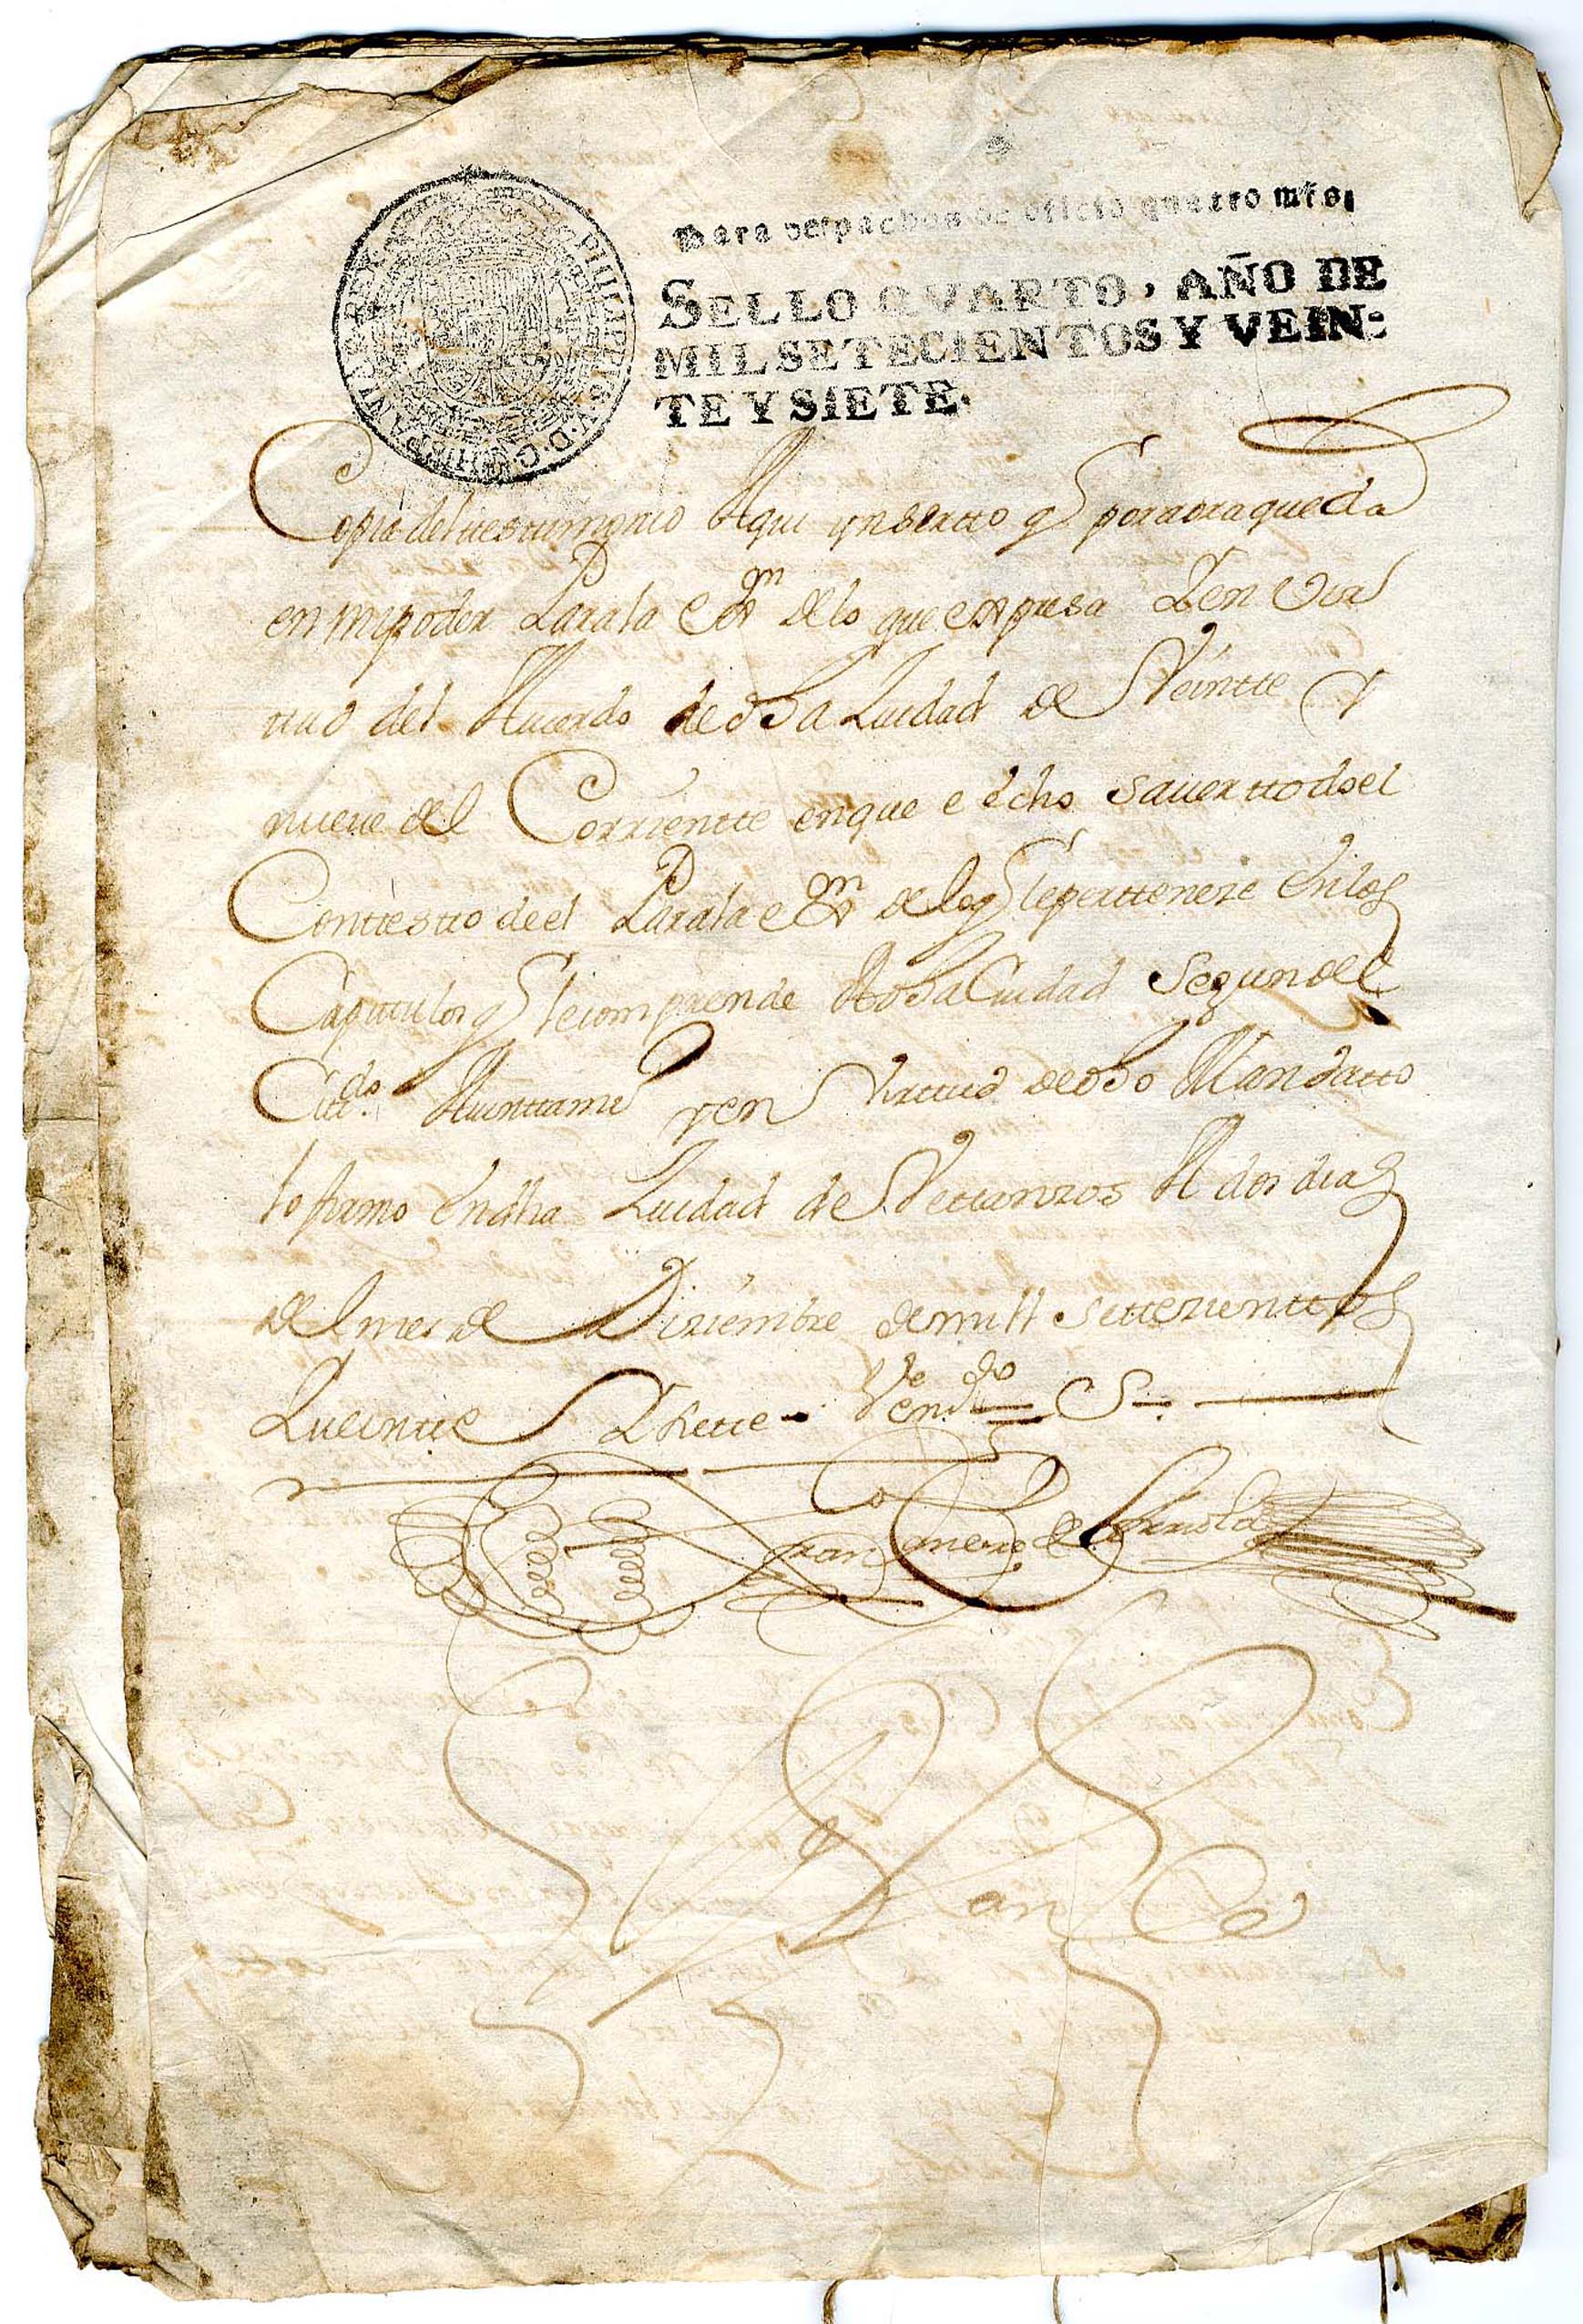 PHILIPPVS V D G HISPANIAR REX
Para despachos de oficio quatro mrs.
SELLO QVARTO, AÑO DE
MIL SETECIENTOS Y VEIN-
TE Y SIETE.
Copia del testimonio Aqui ynsertto q por aora queda
en mi poder Para la exon de lo que expresa Y en Vir
ttud del Acuerdo de dha Ziudad de Veintte y
nueve del Corrientte en que e echo saver ttodo el
Conttestto de el Para la exon de lo q le pertteneze En los
Capittulos q le comprende A dha Ciudad segun del
Cittdo Auinttamto y en Virttud de dho Mandatto
lo firmo En dha Ziudad de Vettanzos A dos dias
del mes de Diziembre de mill settezienttos
Y veintte Y siette
Fran de